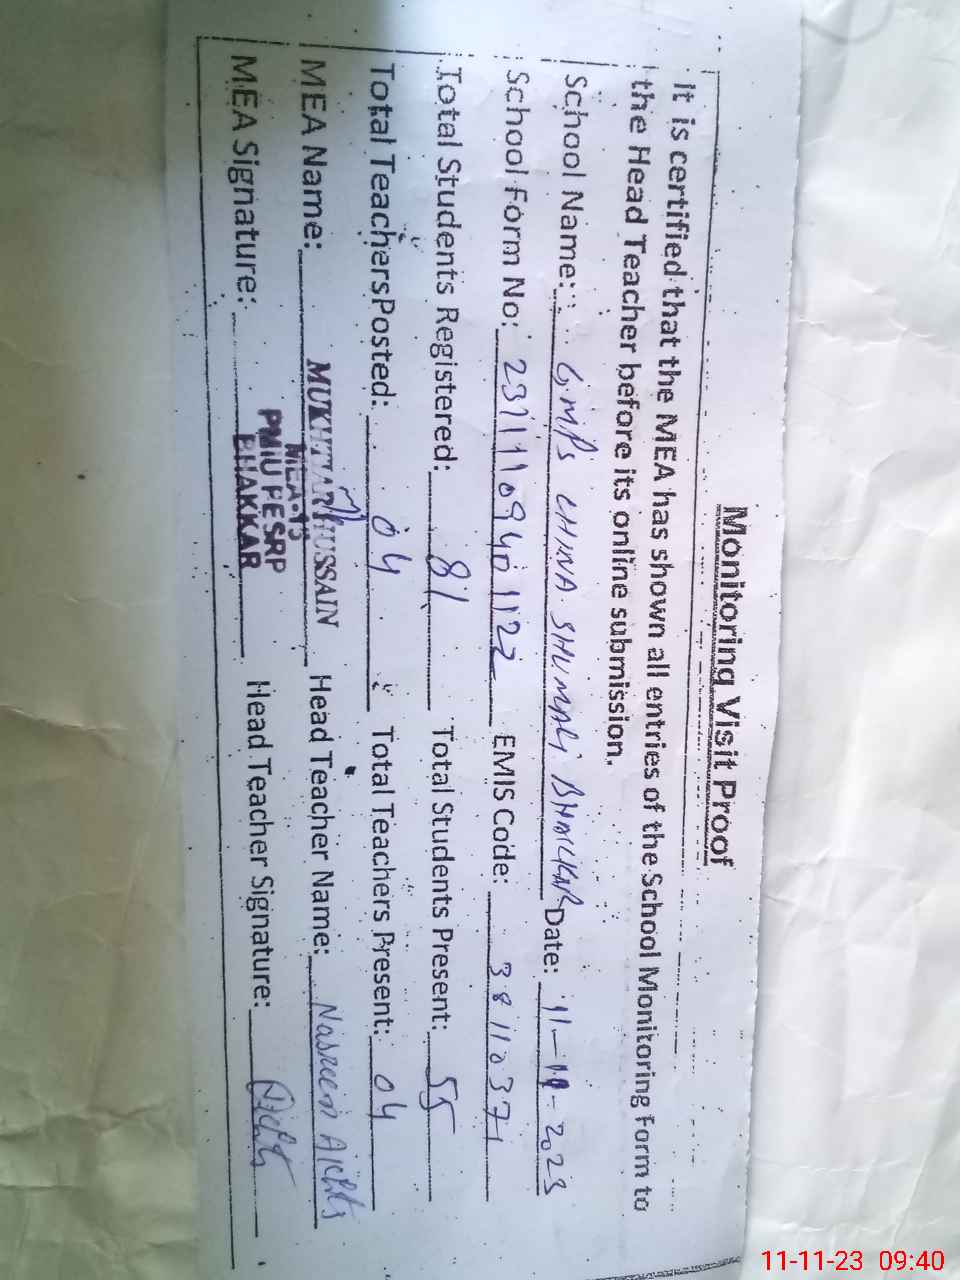 Monitoring Visit Proof
It is certified that the MEA has shown all entries of the School Monitoring Form to
the Head Teacher before its online submission.
School Name: GMPS CHINA SHUMALI BHAKKAR Date: 11-11-2023
School Form No: EMIS Code: 38110371
Total Students Registered: 81 Total Students Present: 55
Total Teachers Posted: 04 Total Teachers Present: 04
MEA Name: MUKHTIAR HUSSAIN Head Teacher Name: Nasreen
MEA-13
MEA Signature: PMIU PESRP Head Teacher Signature:
BHAKKAR
11-11-23 09:40